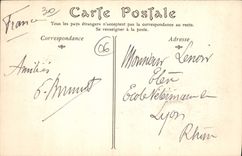 France 30
Carte Postale
Tous les pays étrangers n'acceptent pas la correspondance au recto.
Se renseigner à la poste.
Correspondance
Adresse
06
Amitiés
Monsieur Lenoir
Elève
Ecole Vétérinaire de
Lyon
Rhône